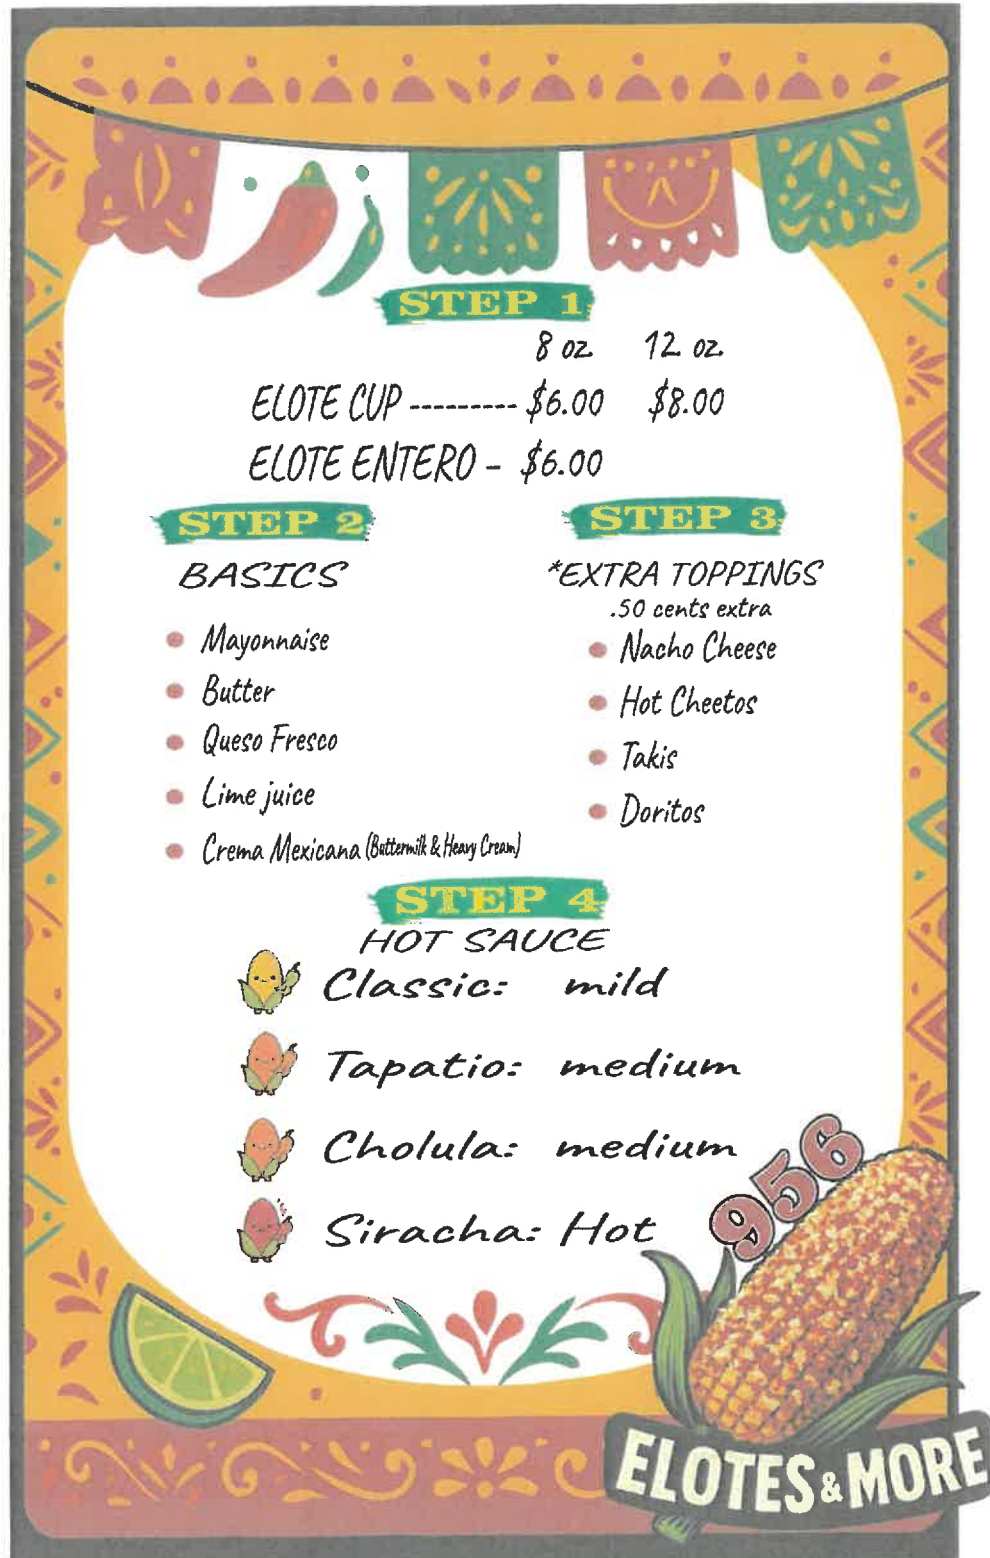 STEP 1
8 oz 12 oz
ELOTE CUP --------- $6.00 $8.00
ELOTE ENTERO - $6.00
STEP 2
BASICS
Mayonnaise
Butter
Queso Fresco
Lime juice
Crema Mexicana (Buttermilk & Heavy Cream)
STEP 3
*EXTRA TOPPINGS
.50 cents extra
Nacho Cheese
Hot Cheetos
Takis
Doritos
STEP 4
HOT SAUCE
Classic: mild
Tapatio: medium
Cholula: medium
Siracha: Hot
956
ELOTES & MORE